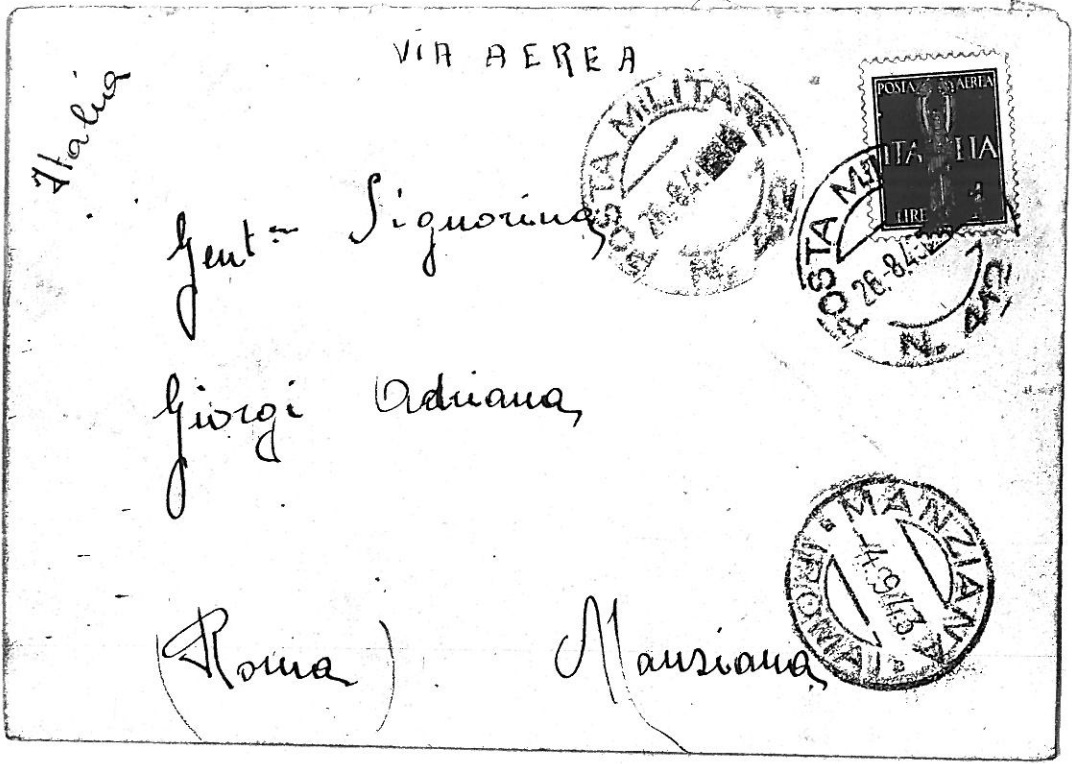 VIA AEREA
Italia
POSTA AEREA
ITALIA
LIRE
POSTA MILITARE
26.8.43
N.
POSTA MIL
26.8.43
N. 412
Gent.ma Signorina
Giorgi Adriana
MANZIANA (ROMA)
4.9.43
(Roma) Manziana